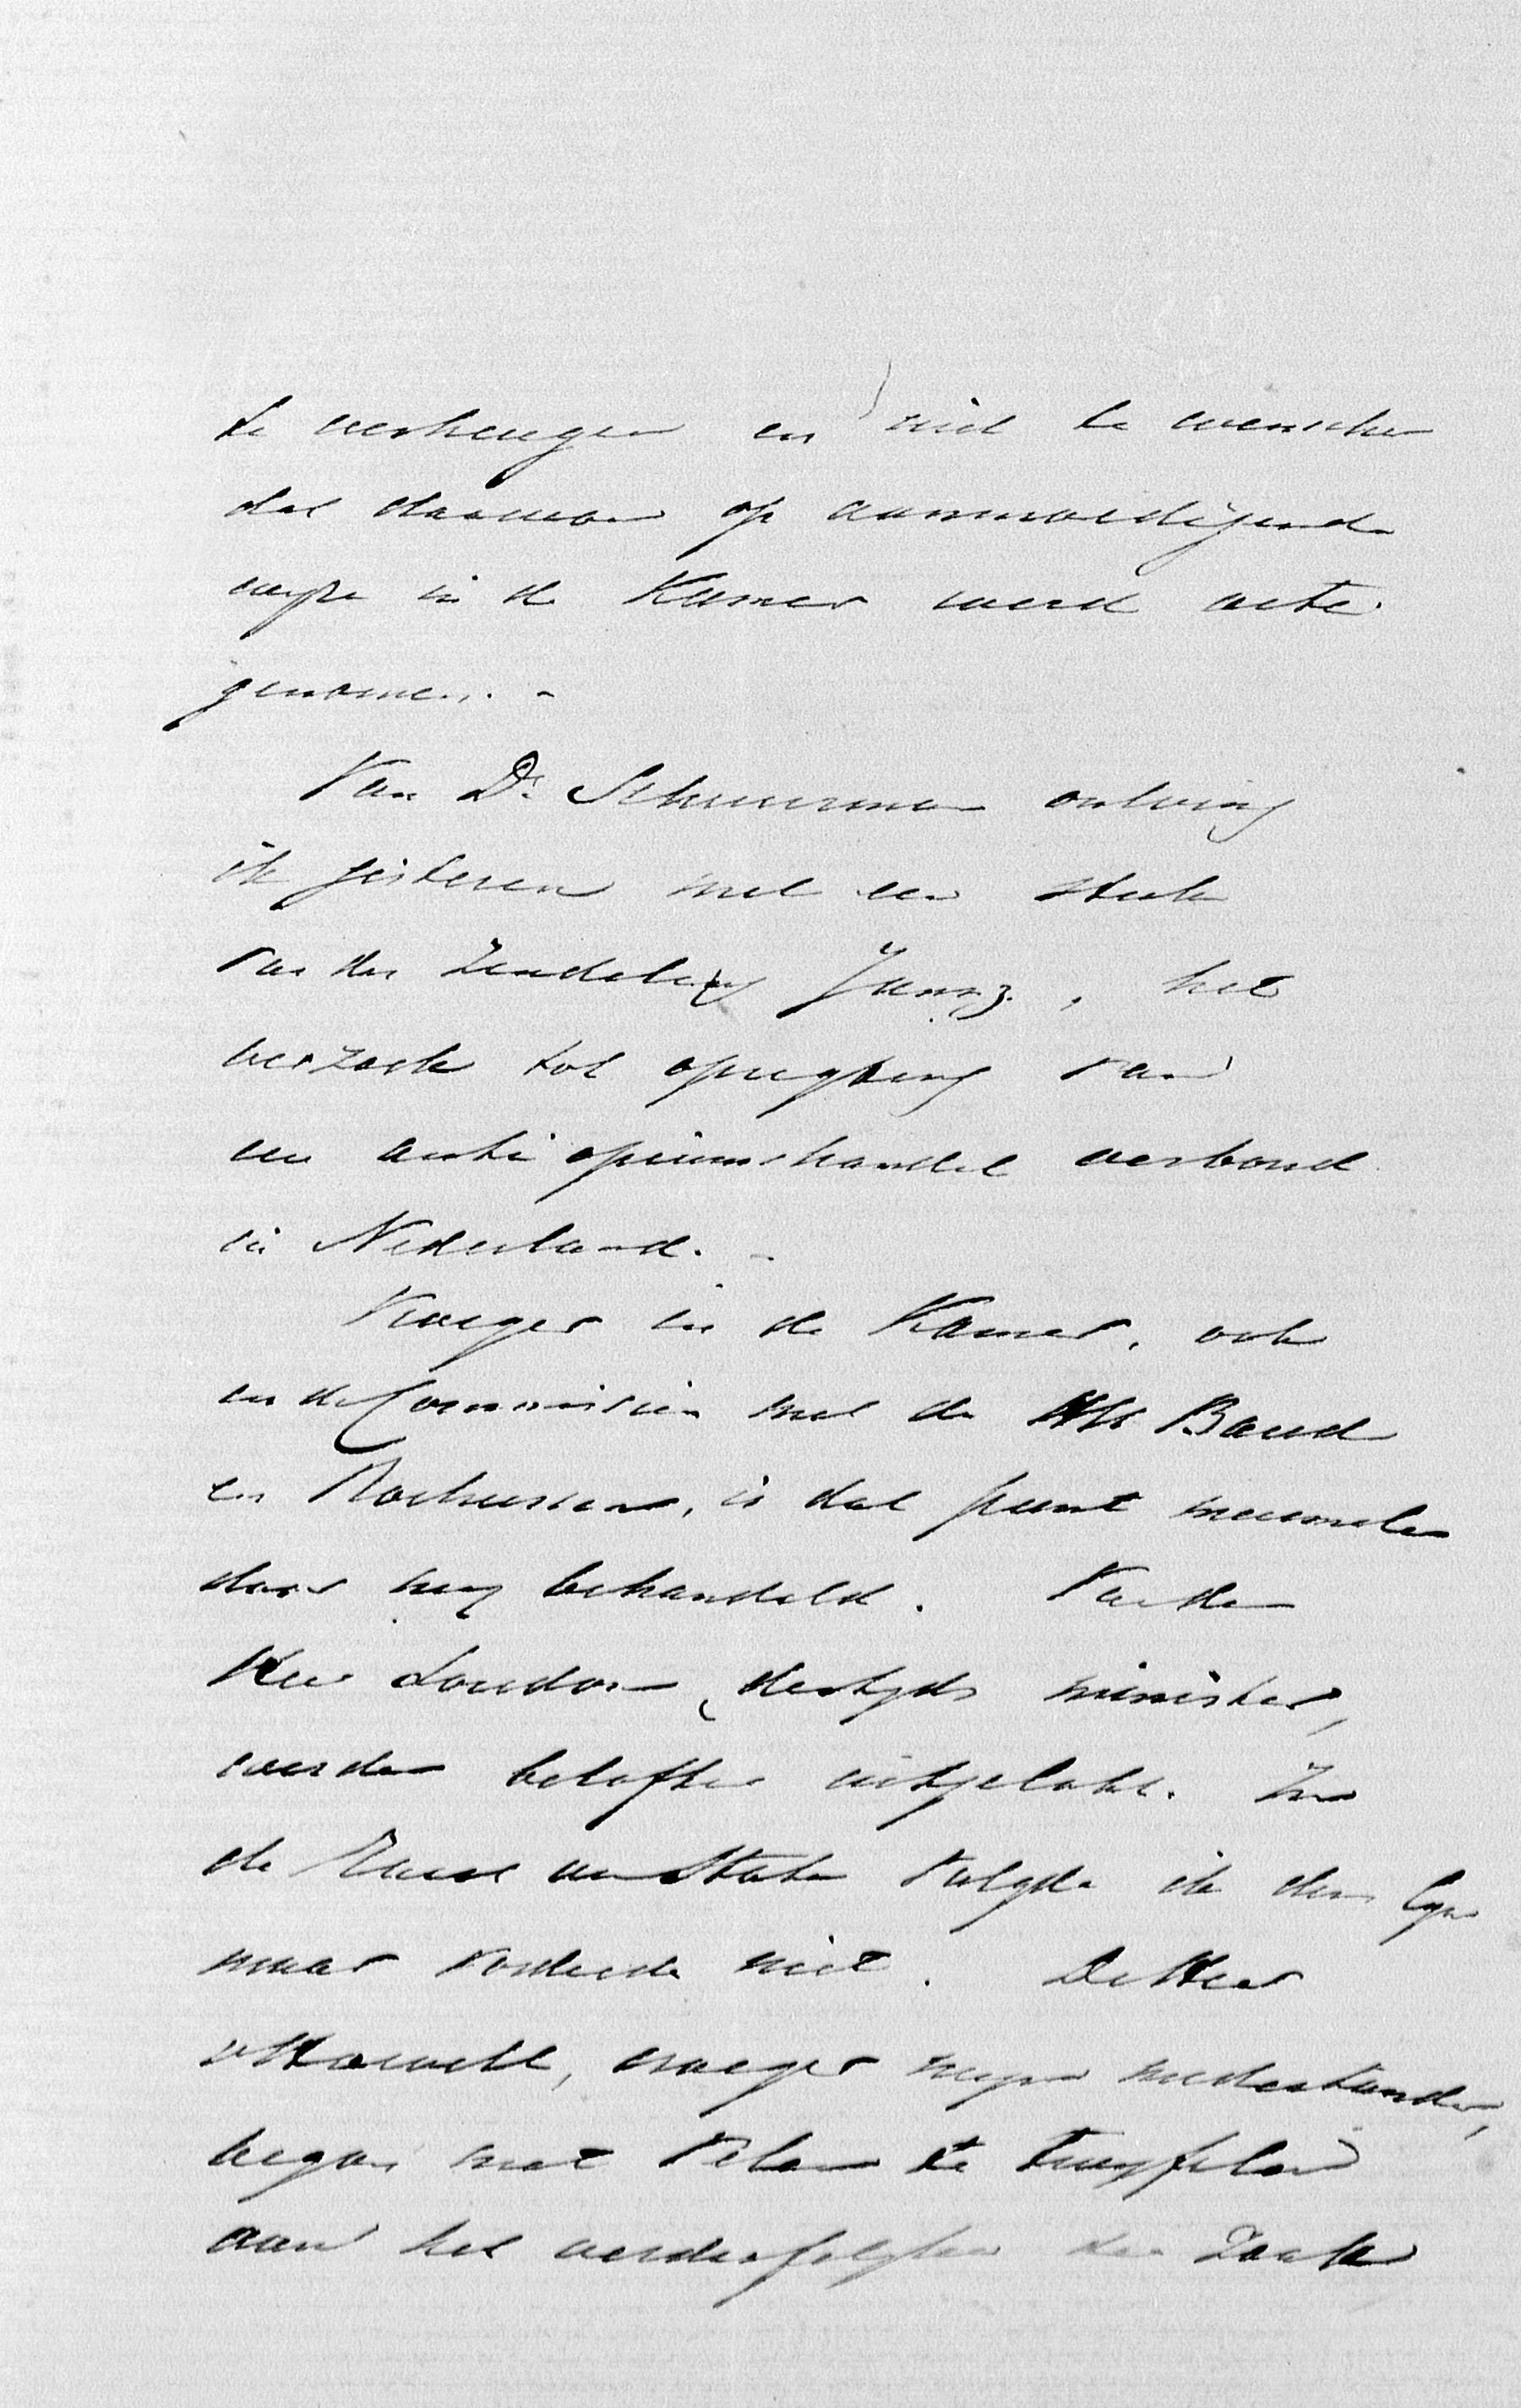 te verheugen en niet te wenschen
dat daarvan op aanmoedigende
wyze in de Kamer werd acte
genomen. -
Van Dr. Schuurman ontving
ik gisteren met een stuk
van den Zendeling Jansz., het
verzoek tot oprigting van
een anti opiumshandel verbond
in Nederland. -
Vroeger in de Kamer, ook
in de Commissien met de HH Baud
en Rochussen, is dat punt meermalen
door my behandeld. Van den
Heer Loudon, destyds minister,
werden beloften uitgelokt. In
de Raad van State volgde ik den lyn
maar vorderde niet. De Heer
v Hoevell, vroeger myn medestander,
begon met velen te twyfelen
aan het der zaak